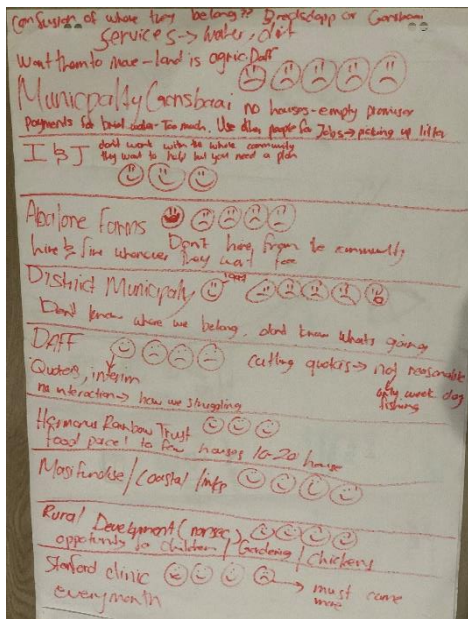 confusion of where they belong?? Bredsdapp or Gansbaai
services → water, dirt
Want them to move - land is agric. Daff
Municpalty Gansbaai no houses - empty promises
payments for water - Too much. Use other people for Jobs → picking up litter
I & J dont work with the whole community
they want to help but you need a plan
Abalone Farms
hire & fire whenever they want Dont hire from the community
District Municipalty
Dont know where we belong. dont know whats going
DAFF
Quoters, interim cutting quoters → not reasonable
no interaction → how we struggling only week day
fishing
Hermanus Rainbow Trust
food parcel to few houses 10-20 house
Masifundise / Coastal links
Rural Development (norsec)
oppotunity to children / Gardering / Chickens
Stanford clinic → must come
everymonth more